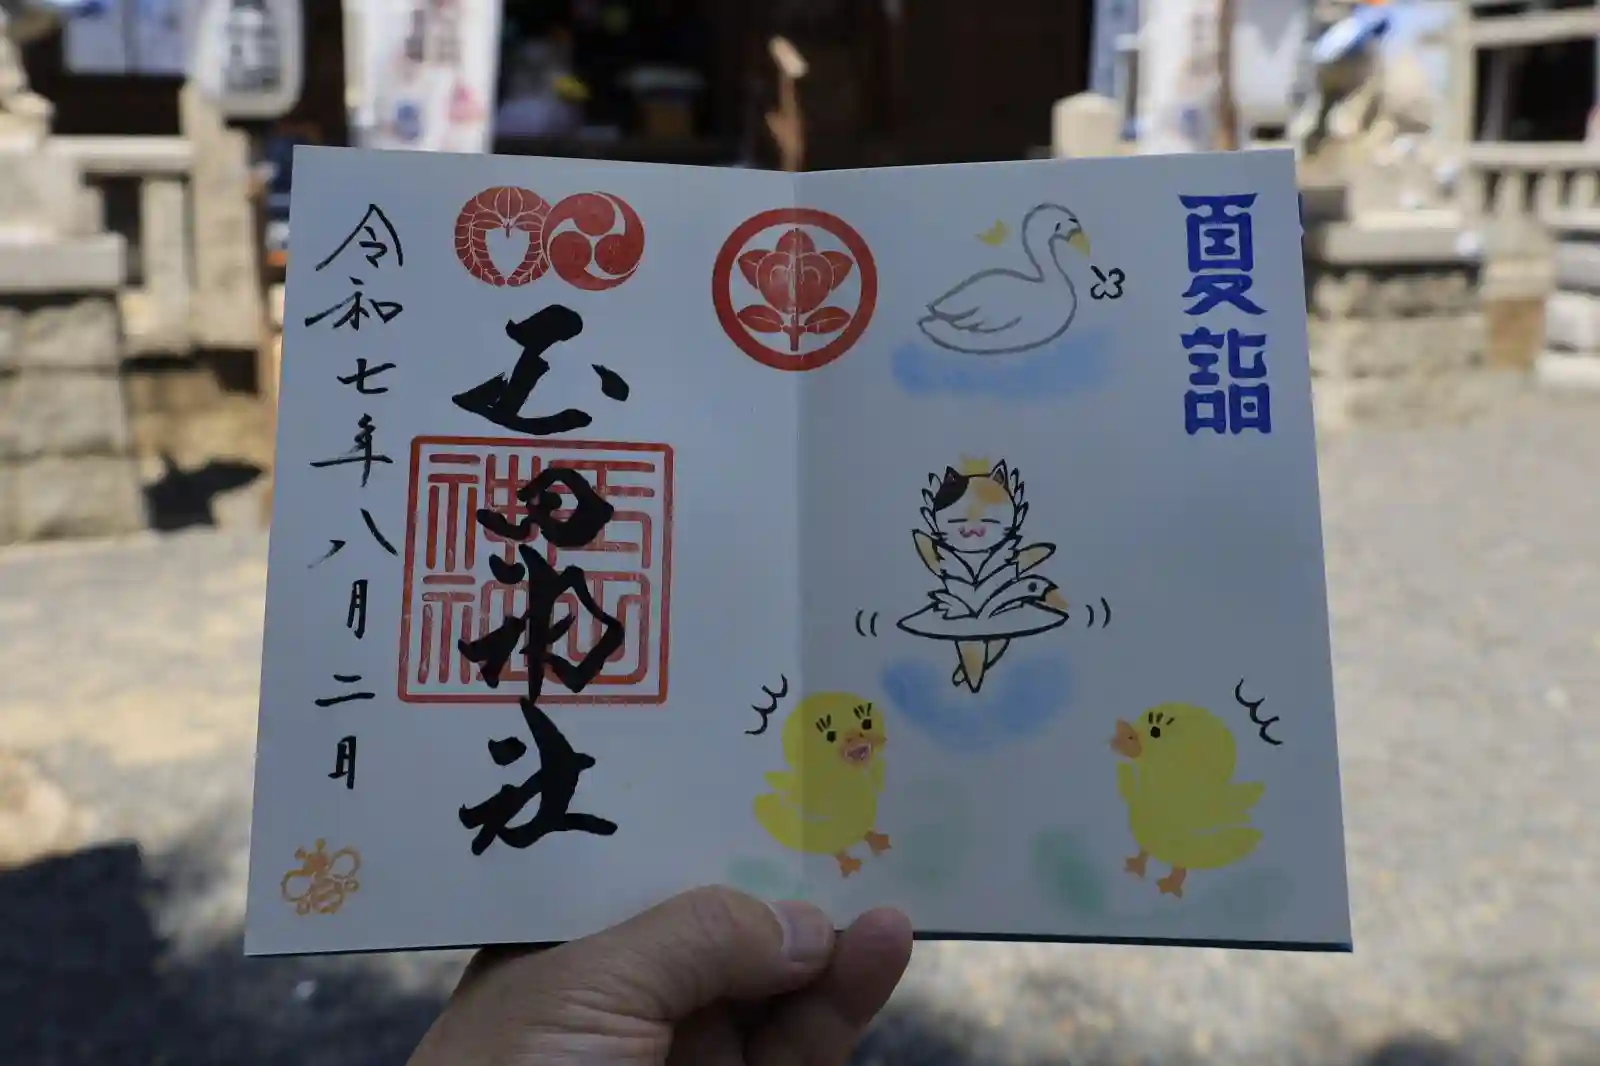 夏詣
玉田神社
玉田
神社
令和七年八月二日